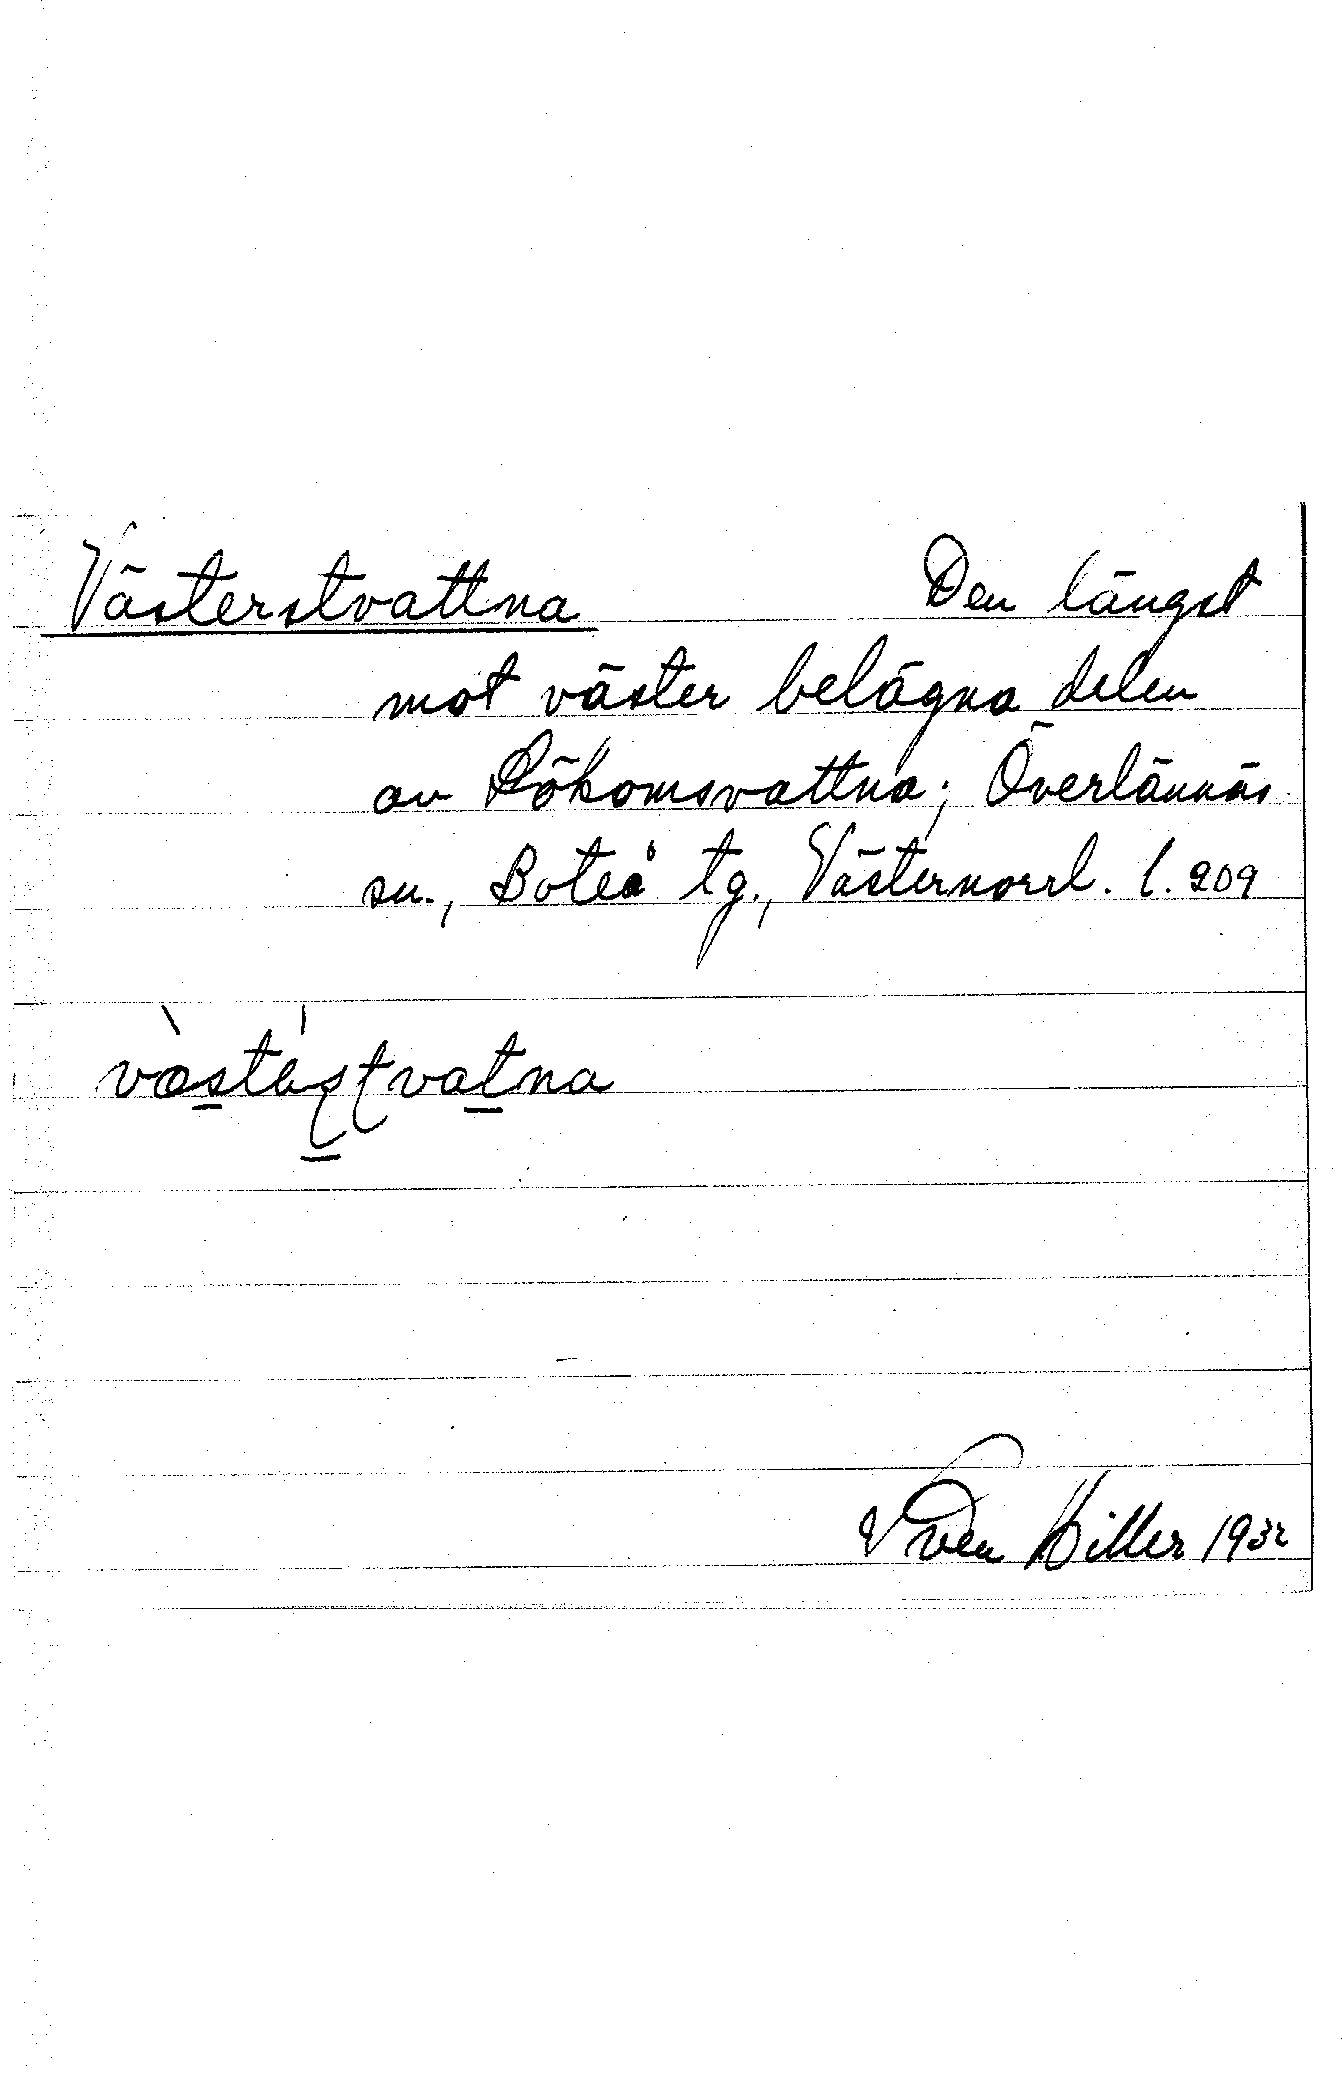 Västerstvattna Den längst
mot väster belägna delen
av Rökomsvattna; Överlännäs
sn., Boteå tg., Västernorrl. l. 209
Sven Hiller 1932